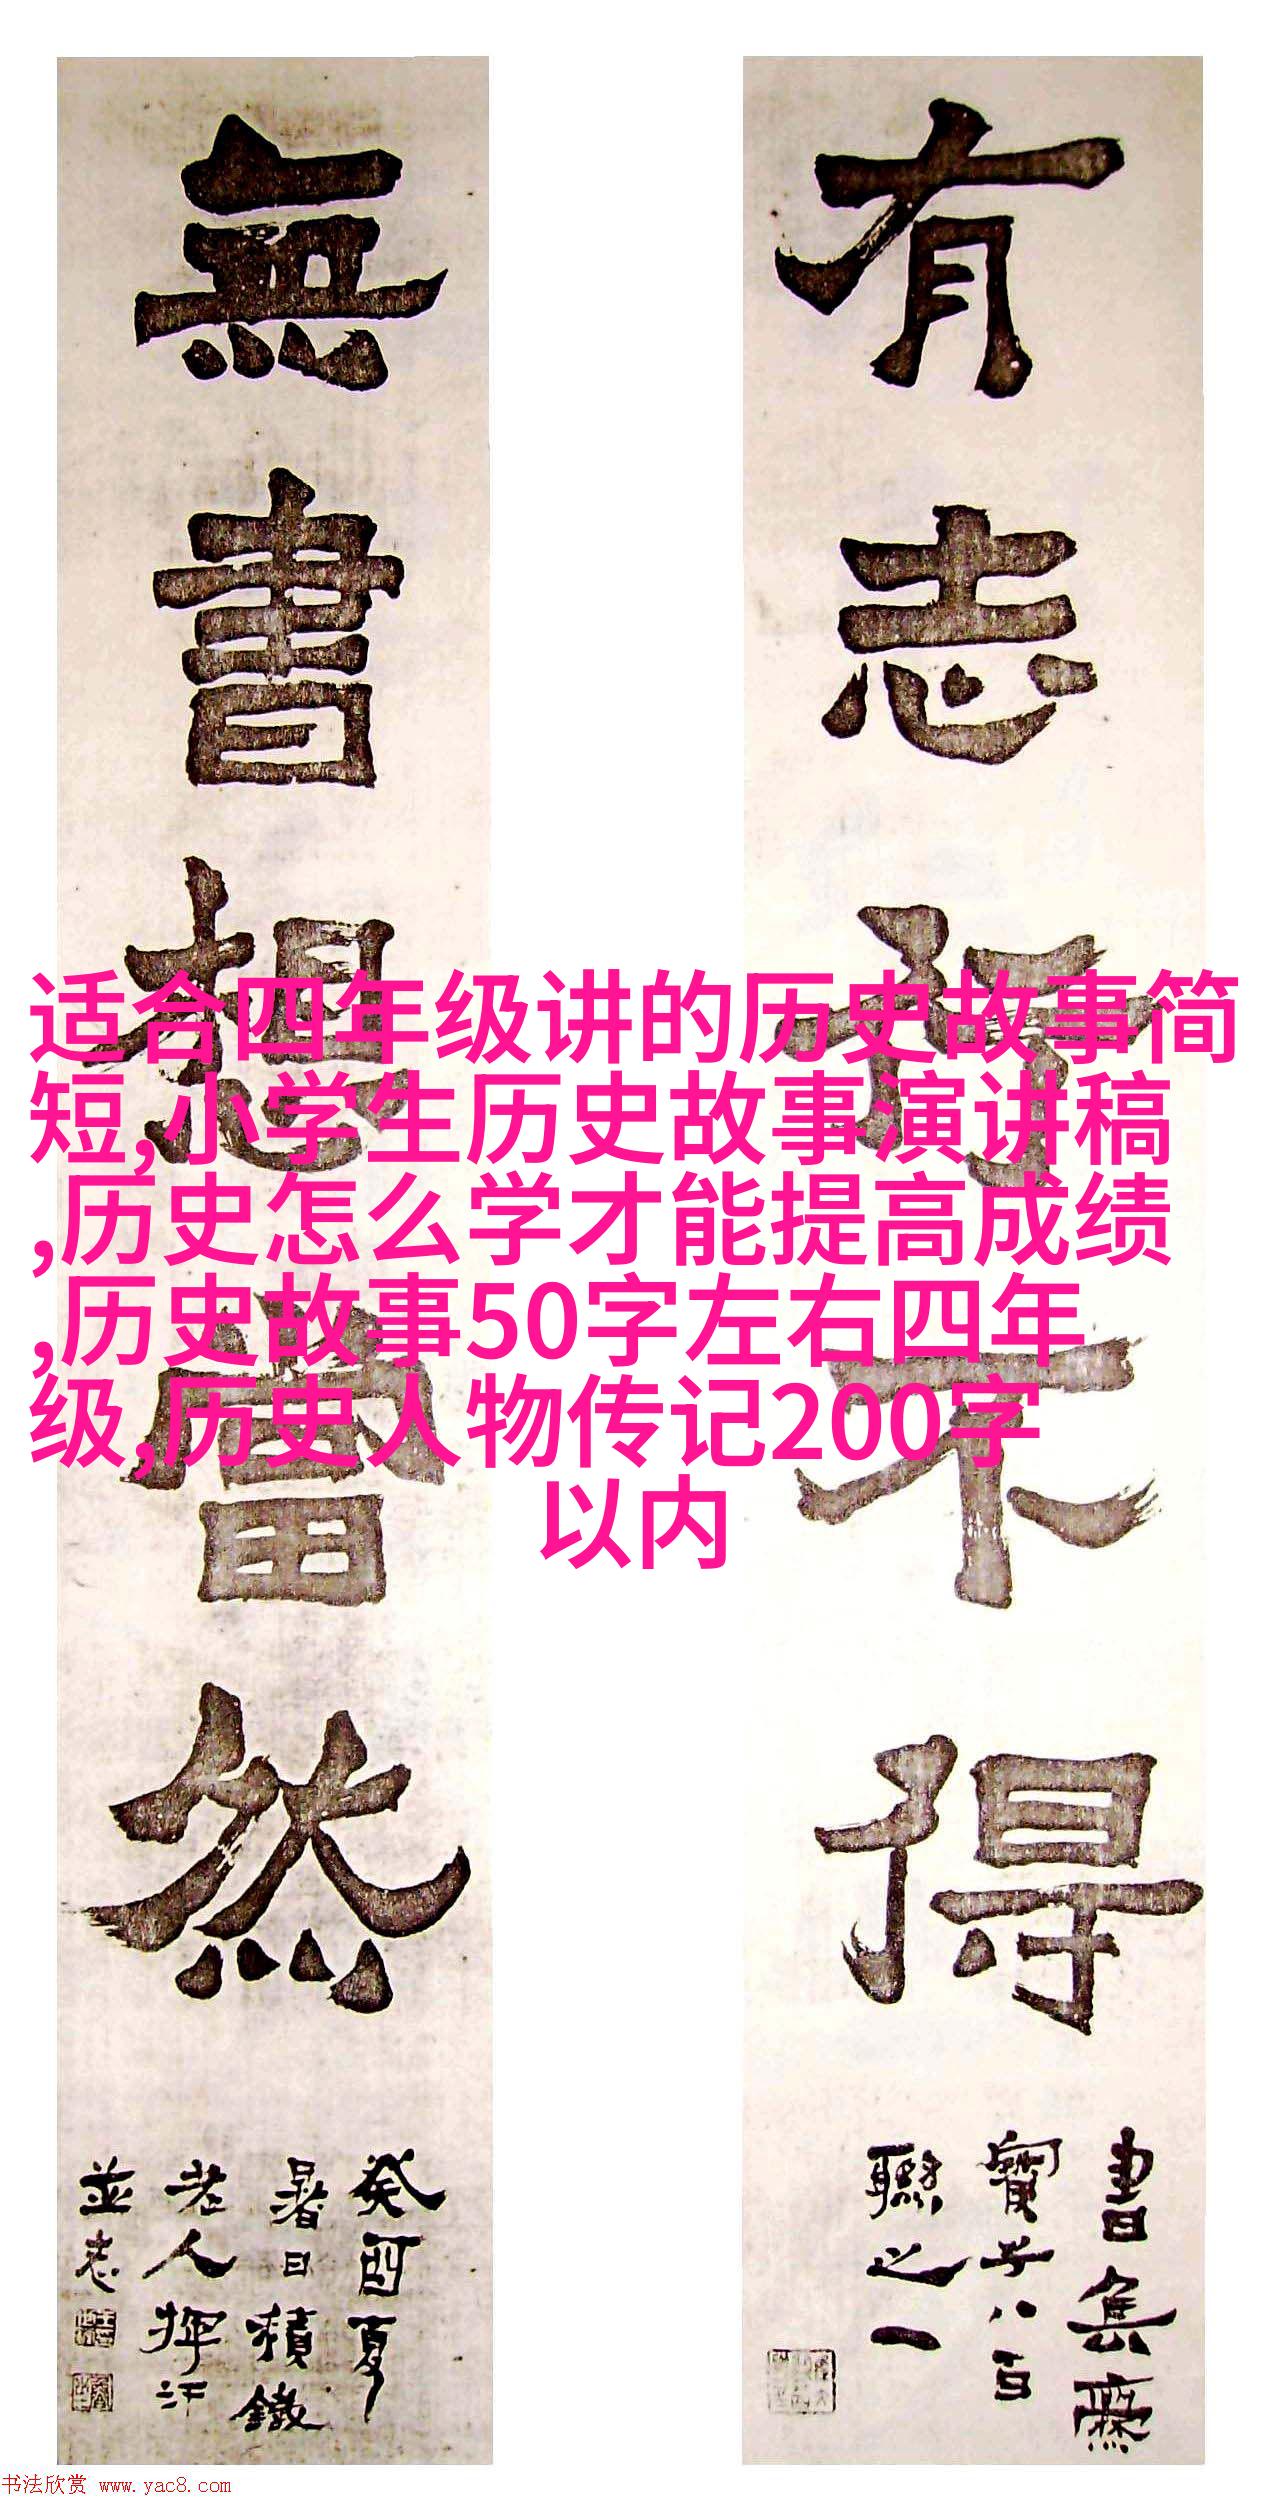 适合四年级讲的历史故事简
短,小学生历史故事演讲稿
,历史怎么学才能提高成绩
,历史故事50字左右四年
级,历史人物传记200字
以内
有志不得
書集爨
寶子八百
聯之一
無書想當然
癸酉夏
暑日積鐵
老人揮汗
並志
书法欣赏 www.yac8.com